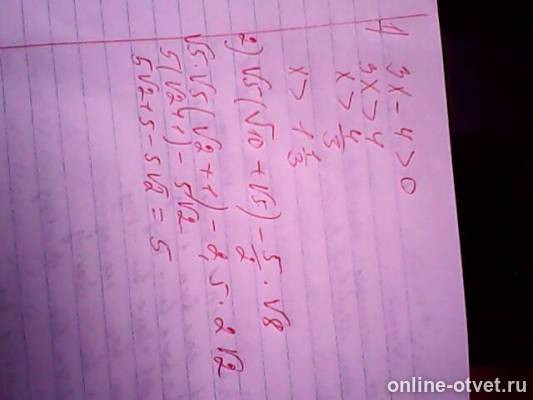 1) 3x - 4 > 0
3x > 4
x > 4/3
x > 1 1/3
2) √5(√10 + √5) - 5/2 · √8
√5 · √5(√2 + 1) - 2,5 · 2√2
5(√2 + 1) - 5√2
5√2 + 5 - 5√2 = 5
online-otvet.ru